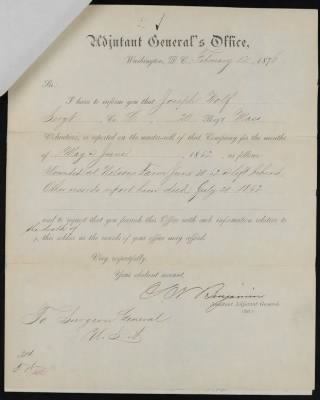 Adjutant General's Office,
Washington, D. C. February 12, 1876
Sir:
I have to inform you that Joseph Wolf
Sergt. Co. 20 Regt Mass
Volunteers, is reported on the muster-roll of that Company for the months
of May & June, 1862, as follows
Wounded at Nelsons Farm June 30 62 & left behind
Other records report him died July 20 1862
and to request that you furnish this Office with such information relative to
the death of
this soldier as the records of your office may afford.
Very respectfully,
Your obedient servant,
Benjamin
Assistant Adjutant General.
To Surgeon General
U.S.A